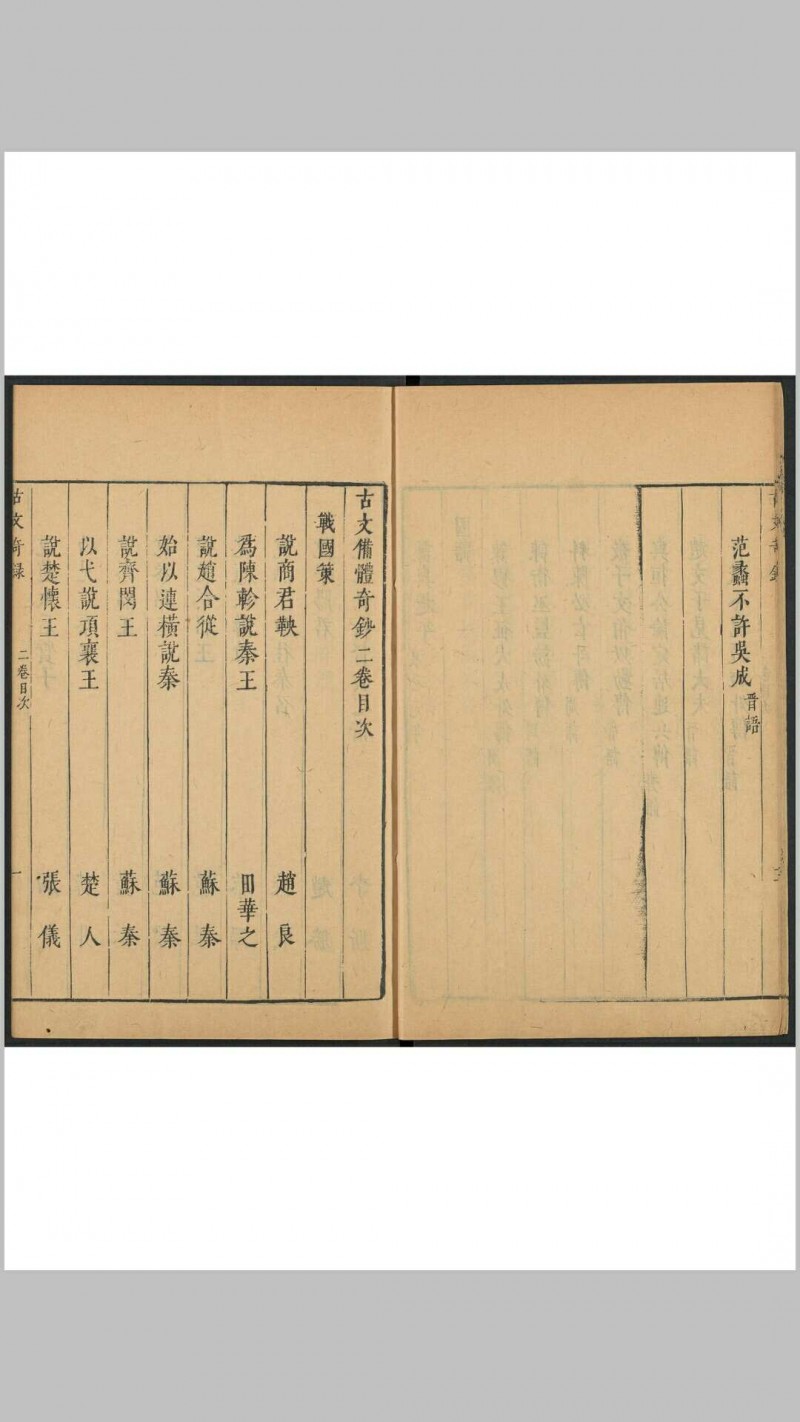 范蠡不許吳成 晋語
古文備體奇鈔二卷目次
戰國策
說商君鞅 趙良
為陳軫說秦王 田華之
說趙合從 蘇秦
始以連橫說秦 蘇秦
說齊閔王 蘇秦
以弋說項襄王 楚人
說楚懷王 張儀
二卷目次 一